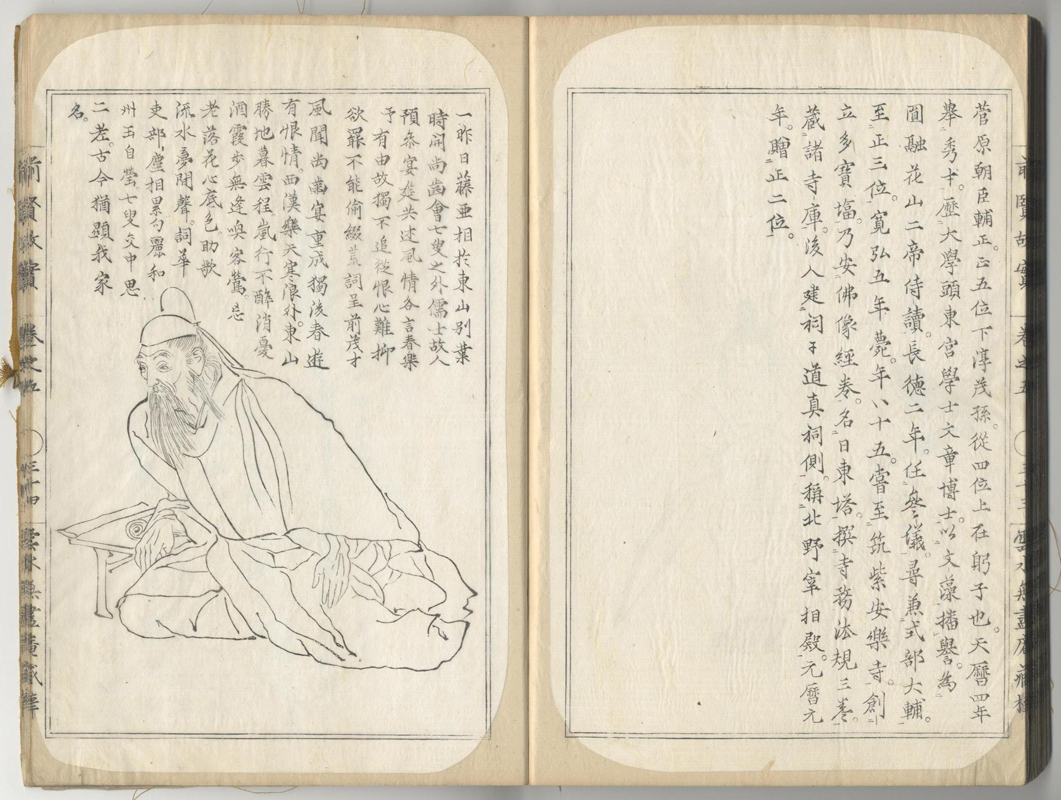 菅原朝臣輔正。正五位下淳茂孫。從四位上在躬子也。天曆四年
擧秀才。歷大學頭東宮學士文章博士。以文藻播譽。為
圓融花山二帝侍讀。長徳二年。任參儀。尋兼式部大輔。
至正三位。寛弘五年薨。年八十五。嘗至筑紫安樂寺。創
立多寶塔。乃安佛像經卷。名曰東塔。撰寺務法規三卷。
藏諸寺庫。後人建祠于道真祠側。稱北野宰相殿。元曆元
年。贈正二位。
前賢故實 卷之五 三十三 雲水無盡庵藏
一昨日藤亜相於東山別業
時開尚齒會七叟之外儒士故人
預泰宴筵共述風情各言春樂
予有由故獨不追從恨心難抑
欲罷不能偷綴 詞呈前茂才
風聞尚齒宴重成獨後春遊
有恨情。西漢樂天寒浪外。東山
勝地暮雲程嵐行不醉消憂
酒霞步無逢喚客鶯。忘
老落花心底色助歌
流水夢聞聲。詞華
吏部塵相累勾麗和
州玉自瑩七叟交中思
二老。古今猶顕我家
名。
前賢故實 卷之五 三十四